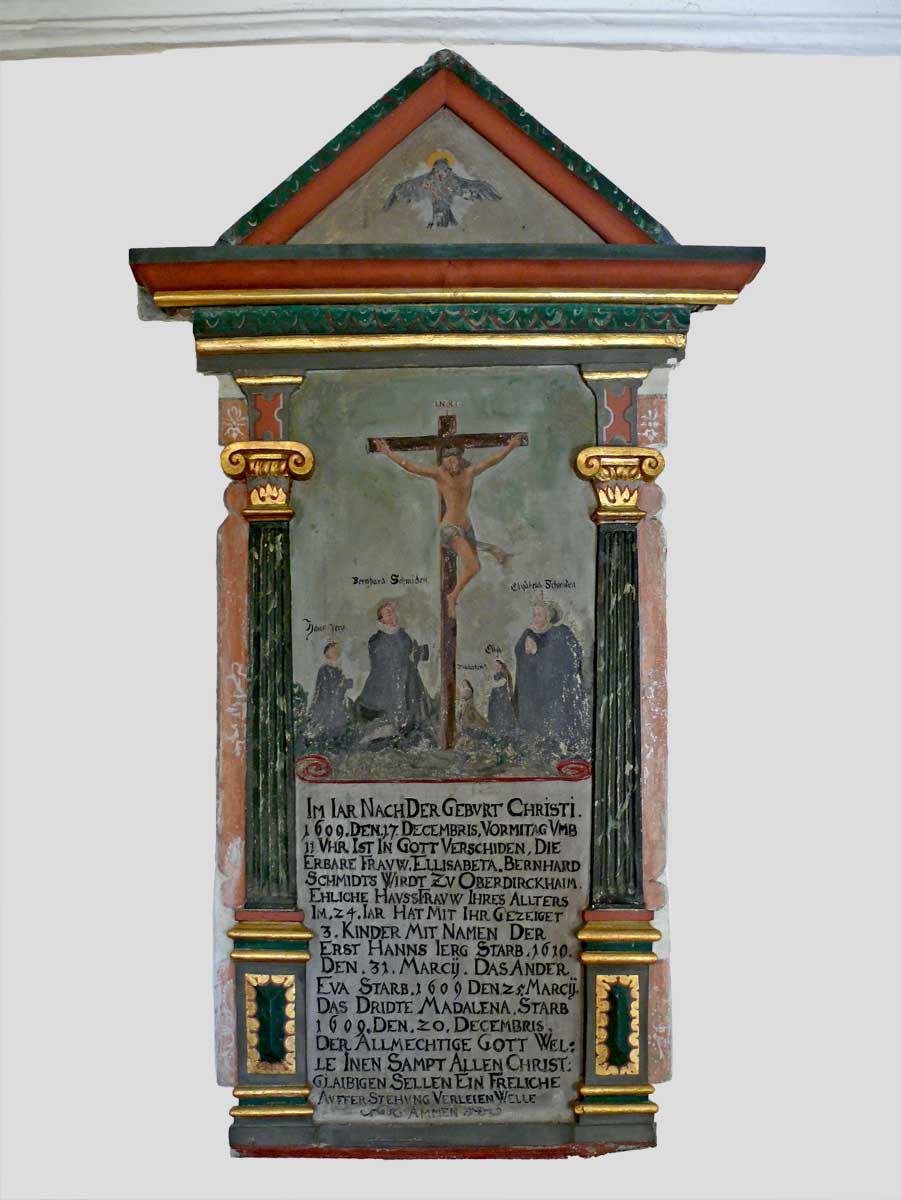 INRI
Bernhard Schmiden
Elisabeta Schmiden
Hans Ierg
Eva
IM IAR NACH DER GEBVRT CHRISTI.
1609. DEN.17 DECEMBRIS, VORMITAG VMB
11 VHR IST IN GOTT VERSCHIDEN, DIE
ERBARE FRAVW. ELLISABETA. BERNHARD
SCHMIDTS WIRDT ZV OBERDIRCKHAIM.
EHLICHE HAVSSFRAVW IHRES ALLTERS
IM. 24. IAR HAT MIT IHR GEZEIGET
3. KINDER MIT NAMEN DER
ERST HANNS IERG STARB. 1610.
DEN. 31. MARCIJ. DAS ANDER
EVA STARB. 1609 DEN 25. MARCIJ.
DAS DRIDTE MADALENA. STARB
1609. DEN. 20. DECEMBRIS.
DER ALLMECHTIGE GOTT WEL=
LE INEN SAMPT ALLEN CHRIST:
GLAIBIGEN SELLEN EIN FRELICHE
AVFFERSTEHVNG VERLEIEN WELLE
AMMEN